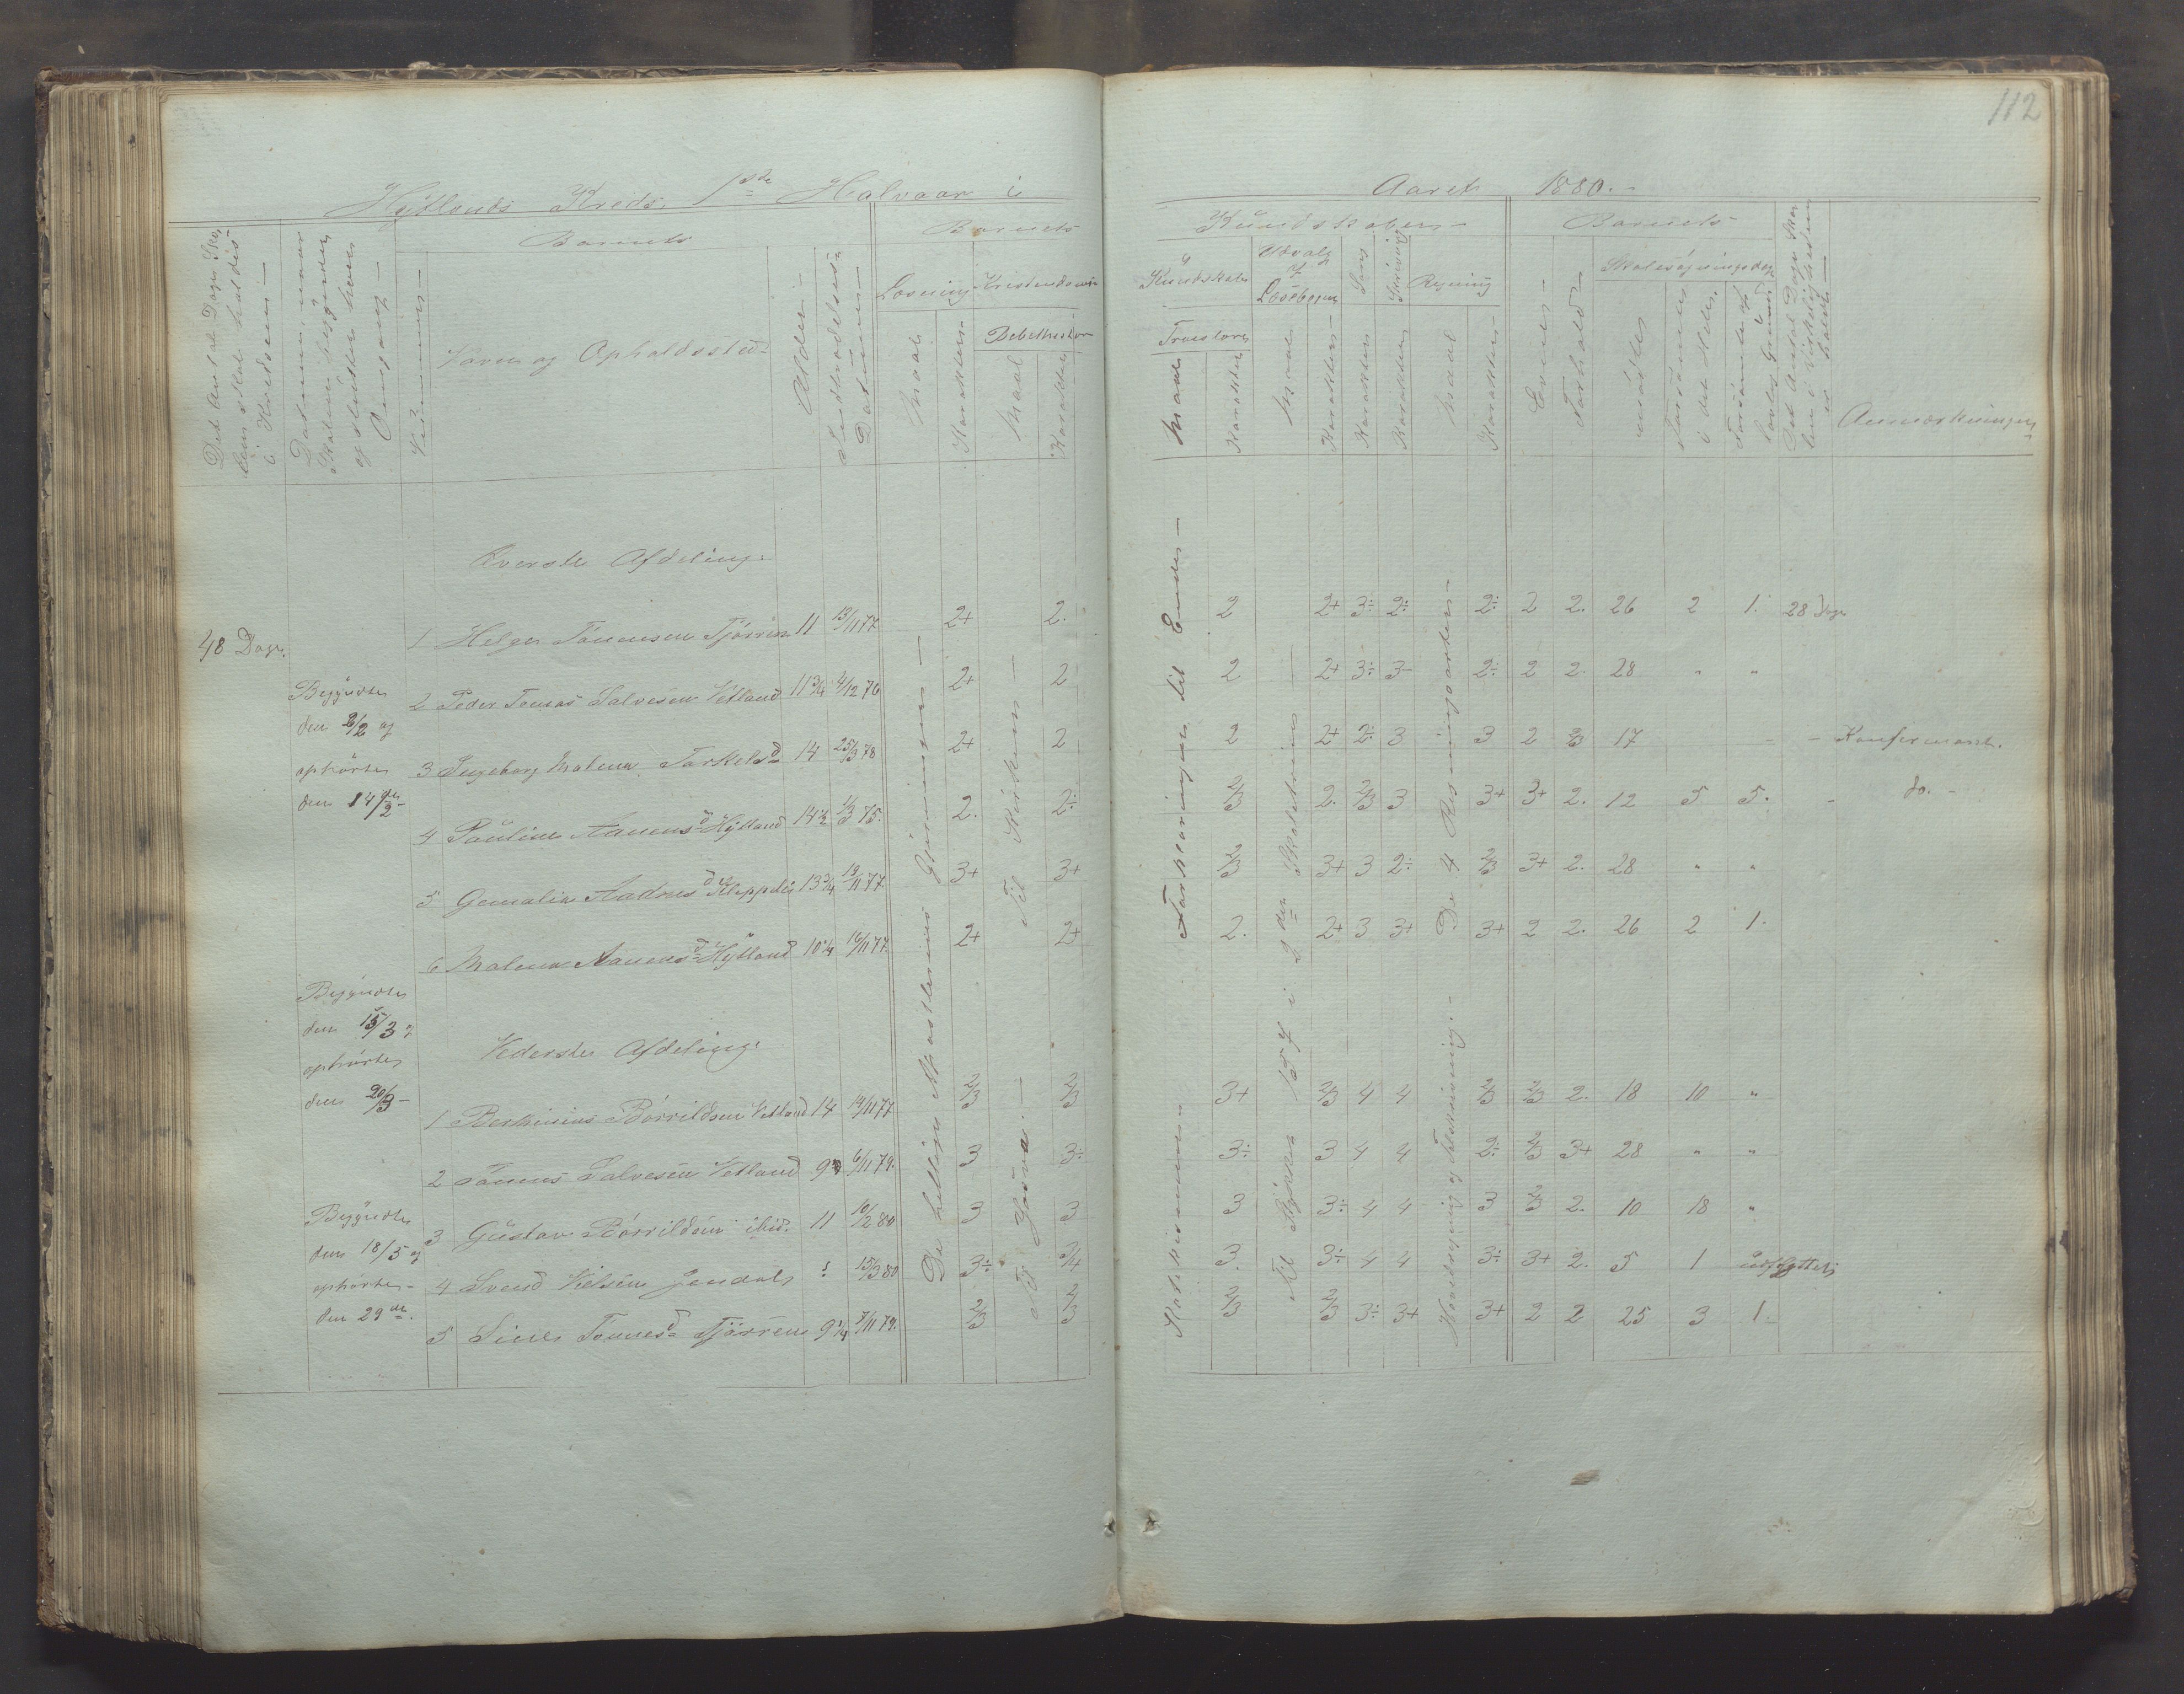 112
Hÿllands Kreds. 1ste Halvaar i Aaret 1880.-
Det Antal Dage Skolen skal holdes i Kredsen-
Datum, naar Skolen begynder og slutter hver Omgang-
Nummer-
Barnets
Navn og Opholdssted-
Alder-
Indtrædelses- Datum-
Barnets
Læsning
Kristendoms-
Maal
Karakter-
Bibelhistorie
Maal
Karakter
Kundskaber-
Kundskab
Troeslære
Maal
Karakter
Udvalg af Læsebogen
Maal
Karakter-
Sang
Karakter
Skrivning
Karakter
Regning
Maal
Karakter-
Barnets
Evner-
Forhold-
Skolesøgningsdage
mødte
forsømte i det Hele.
forsømte af lovlig Grund
Det Antal Dage Skolen i Virkeligheden er holdt-
Anmærkninger
Øverste Afdeling.
48 Dage.
1 Helge Tønnesen Tjørren 11 13/11 77 2+ 2. 2 2+ 3÷ 2÷ 2÷ 2 2. 26 2 1. 28 Dage
2 Peder Tomas Salvesen Vetland 11 3/4 4/12 76 2+ 2 2 2+ 3÷ 3- 2÷ 2 2 28 " "
3 Ingeborg Malena Tarkelsd 14 25/3 78 2+ 2 2 2+ 2÷ 3 3 2 2/3 17 - - Konfirmant.
4 Pauline Aanensd Hÿlland 14 1/2 1/3 75. 2. 2÷ 2/3 2. 2/3 3 3+ 3+ 2. 12 5 5. - do.-
5 Gemalie Andreasd Kleppeli 13 3/4 13/11 77. 3+ 3+ 2/3 3+ 3 2÷ 2/3 3+ 2. 28 " "
6 Malena Aanensd Hÿlland 10 1/4 16/11 77. 2+ 2+ 2. 2+ 3 3+ 3+ 2 2. 26 2 1.
Begyndte
den 2/2 og
ophørte
den 14de/2-
Begyndte
den 15/3 og
ophørte
den 20/3-
Nederste Afdeling.
1 Berthinius Børrildsen Vetland 14 14/11 77 2/3 2/3 3+ 2/3 4 4 2/3 2/3 2. 18 10 "
2 Tønnes Salvesen Vetland 9 6/11 79. 3 3÷ 3÷ 3 4 4 2÷ 2/3 3+ 28 " "
3 Gustav Børrildsen ibid. 11 10/2 80 3 3 3 3÷ 4 4 3 2/3 2. 10 18 "
4 Svend Nilsen 15/3 80 3÷ 3/4 3. 3÷ 4 4 3÷ 3+ 2. 5 1 udflyttet
5 Sine Tønnesd Tjørren 9 1/4 7/11 79. 2/3 2/3 2/3 2/3 3÷ 3+ 3+ 2 2 25 3 1.
Begyndte
den 18/5 og
ophørte-
den 29de.
De hellige Apostlerines Gjerninger-
Til Kirken-
Forklaringen til Enden-
Til Stykket 157 i 2den Skoletrin-
De 4 Regningsarter-
Hovedregning og Talskrivning.-